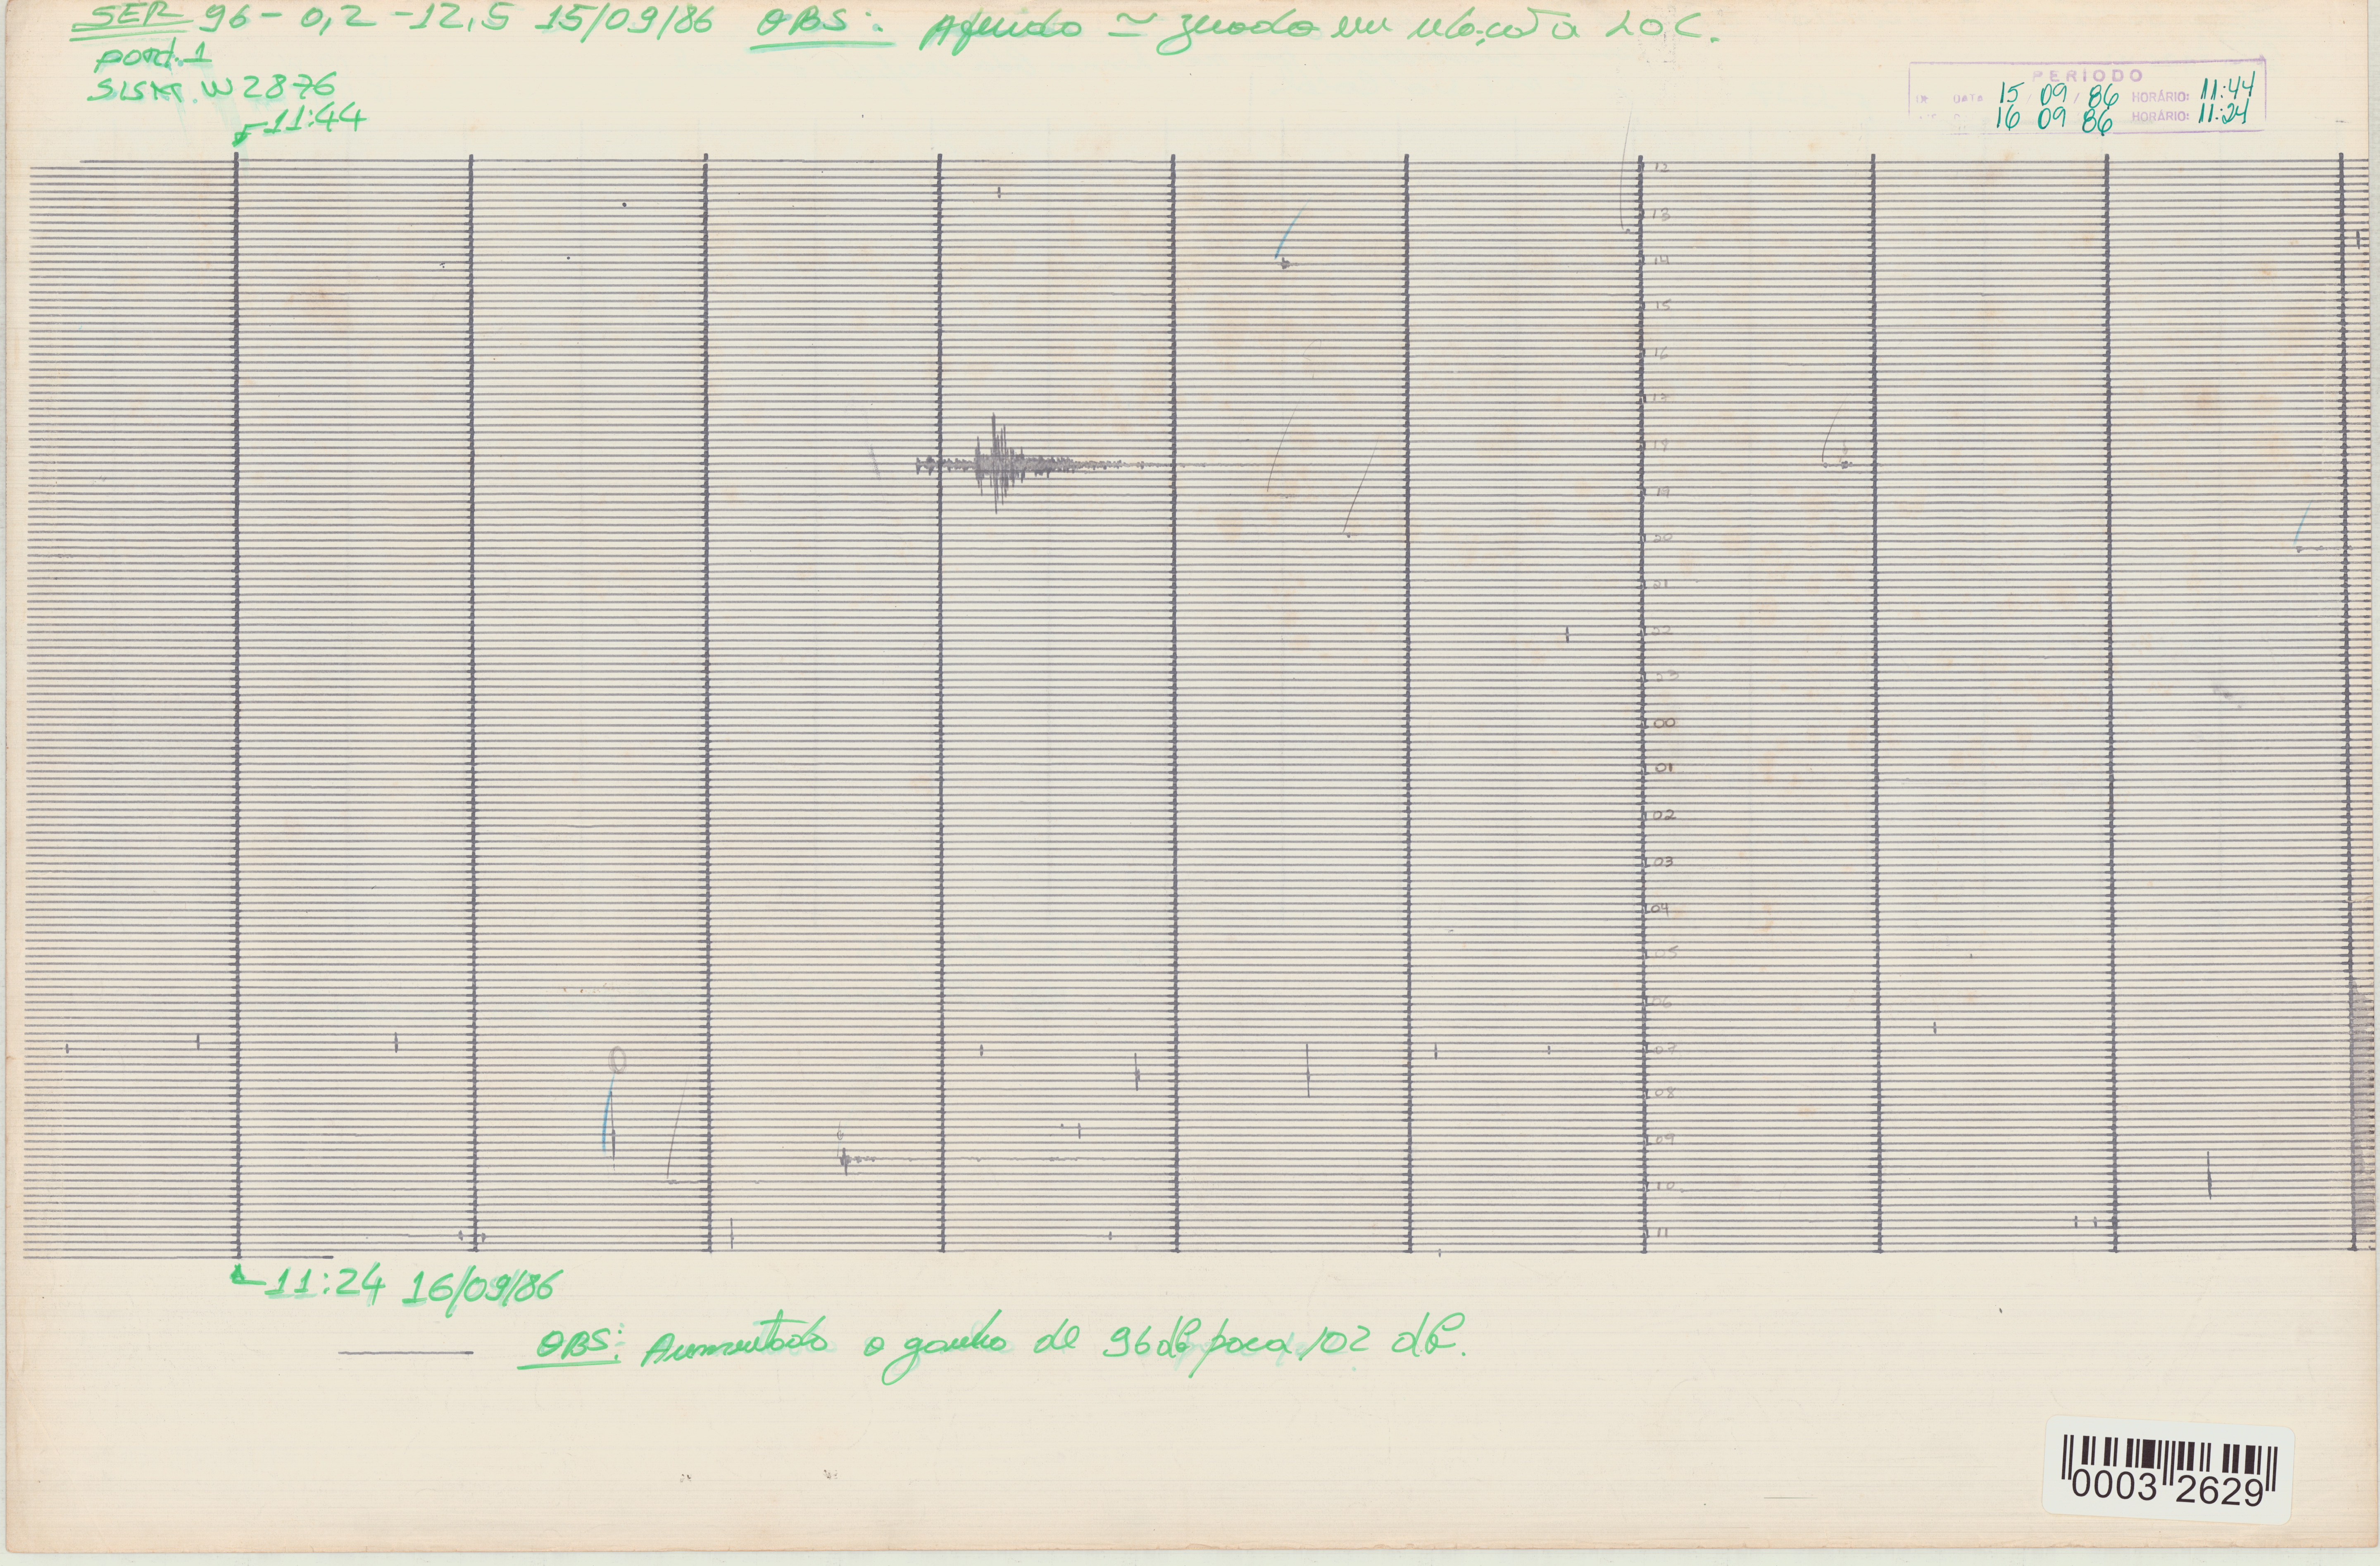 SER 96 - 0,2 - 12,5 15/09/86 OBS: ≃ em LOC.
SISM. W 2876
11:44
PERÍODO
DATA 15 / 09 / 86 HORÁRIO: 11:44
16 09 86 HORÁRIO: 11:24
12
13
14
15
16
17
18
19
20
21
22
23
00
01
02
03
04
05
06
07
08
09
10
11
11:24 16/09/86
OBS: Aumentado o ganho de 96 db para 102 db.
0003 2629